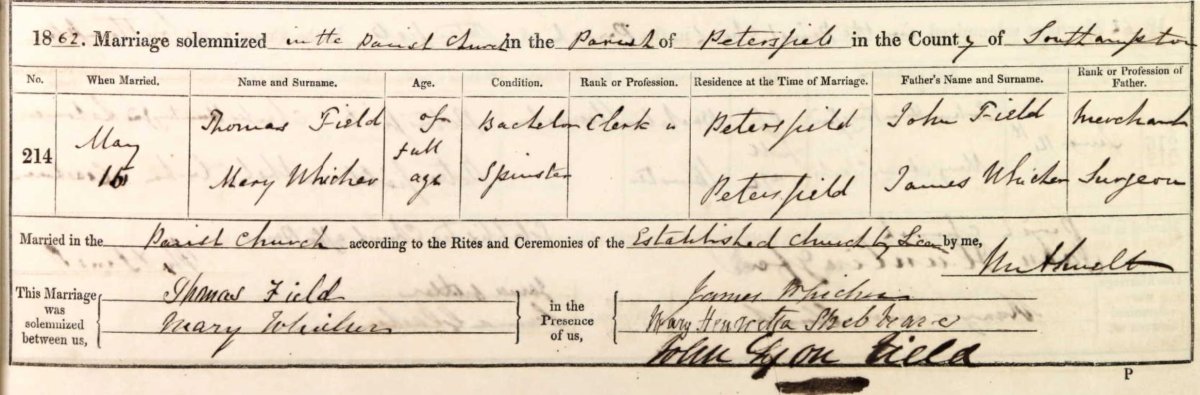 1862. Marriage solemnized in the Parish Church in the Parish of Petersfield in the County of Southampton
No. When Married. Name and Surname. Age. Condition. Rank or Profession. Residence at the Time of Marriage. Father's Name and Surname. Rank or Profession of Father.
214 May 15 Thomas Field of full age Bachelor Clerk Petersfield John Field Merchant
Mary Whicher Spinster Petersfield James Whicher Surgeon
Married in the Parish Church according to the Rites and Ceremonies of the Established Church by Licen by me,
This Marriage was solemnized between us, Thomas Field Mary Whicher in the Presence of us, James Whicher
Mary Henrietta Shebbeare
John Lyon Field
P